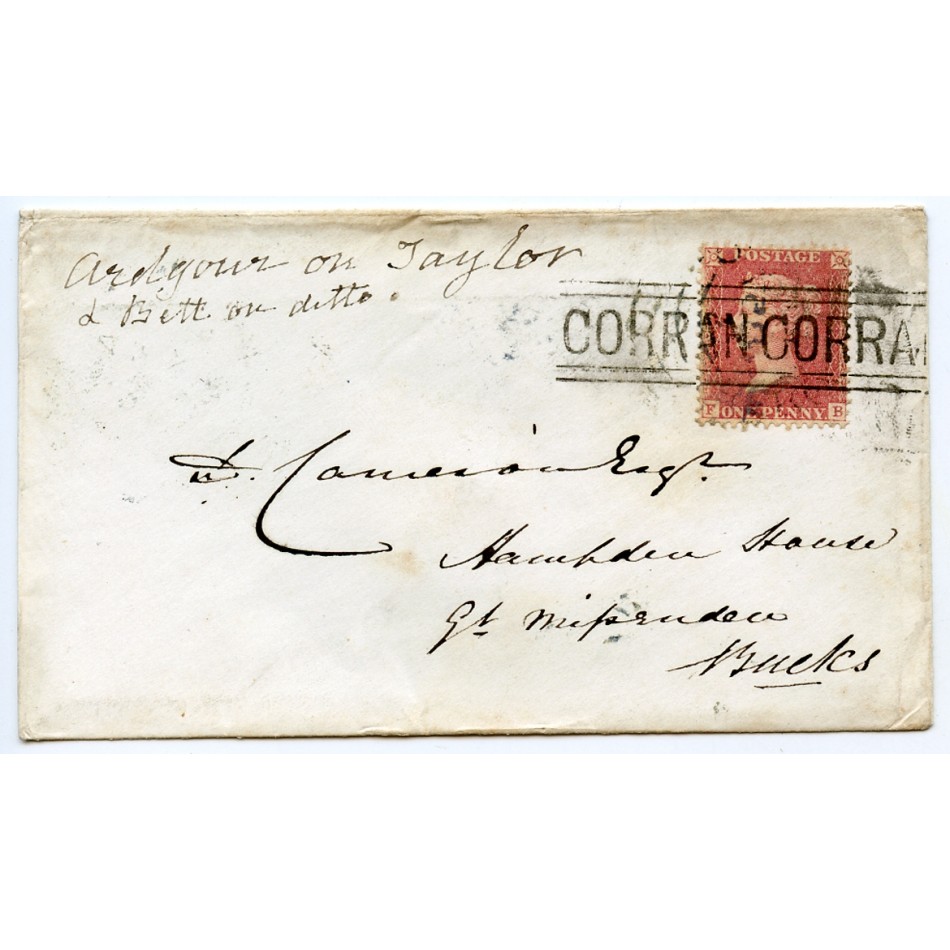 Ardgour on Taylor
& Bett on ditto.
POSTAGE
CORRAN CORRAN
F ONE PENNY B
D. Cameron Esqr.
Hampden House
Gt Missenden
Bucks